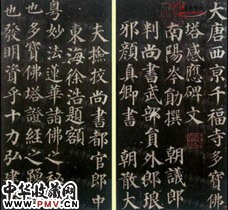 大唐西京千福寺多寶佛
塔感應碑文
南陽岑勛撰 朝議郎
判尚書武部員外郎琅
邪顏真卿書 朝散大
夫撿挍尚書都官郎中
東海徐浩題額
粵妙法蓮華諸佛之
也多寶佛塔證經之踴
也發明資乎十力弘建
中华收藏网
WWW.PMV.CN